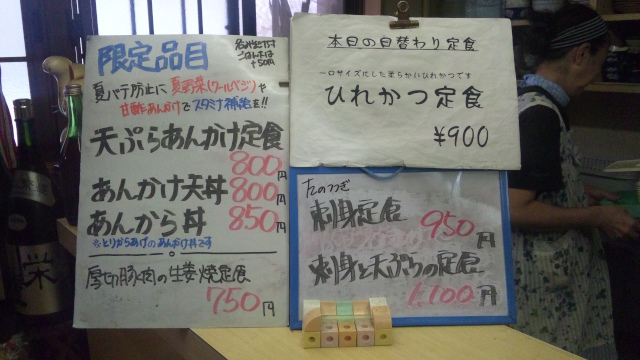 限定品目
夏バテ防止に夏野菜(クールベジ)や
甘酢あんかけでスタミナ補給を!!
天ぷらあんかけ定食
800円
あんかけ天丼 800円
あんから丼 850円
とりからあげのあんかけ丼です
厚切豚肉の生姜焼定食
750円
本日の日替わり定食
一口サイズにした柔らかいひれかつです
ひれかつ定食
¥900
刺身定食 950円
刺身と天ぷらの定食
1,100円
栄